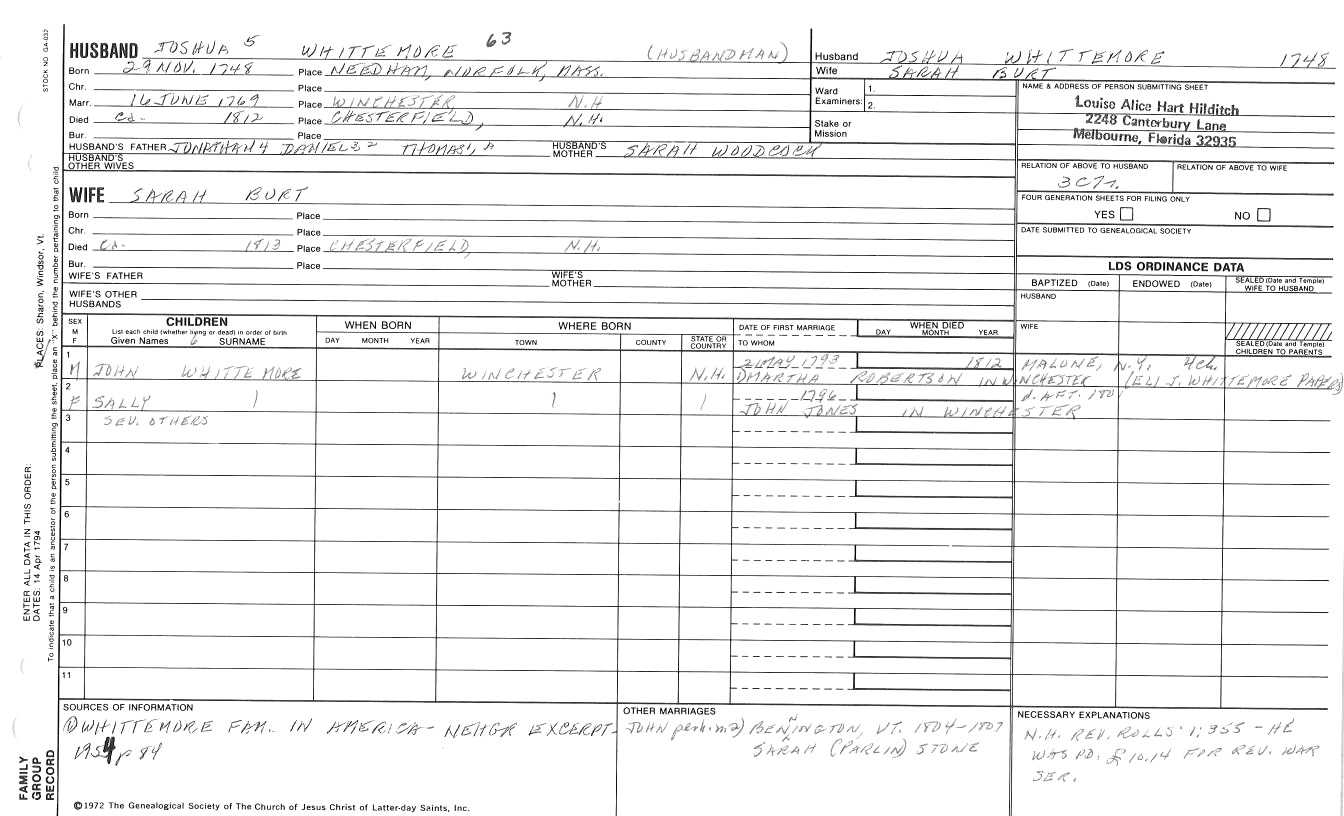 STOCK NO. GA-032
HUSBAND JOSHUA 5 WHITTEMORE 63 (HUSBANDMAN)
Born 29 NOV. 1748 Place NEEDHAM, NORFOLK, MASS.
Chr. Place
Marr. 16 JUNE 1769 Place WINCHESTER N.H
Died 1812 Place CHESTERFIELD, N.H.
Bur. Place
HUSBAND'S FATHER JONATHAN 4 DANIEL 3 2 THOMAS 1, A HUSBAND'S MOTHER SARAH WOODCOCK
HUSBAND'S OTHER WIVES
Husband JOSHUA WHITTEMORE 1748
Wife SARAH BURT
Ward Examiners: 1.
2.
Stake or Mission
NAME & ADDRESS OF PERSON SUBMITTING SHEET
Louise Alice Hart Hilditch
2248 Canterbury Lane
Melbourne, Florida 32935
RELATION OF ABOVE TO HUSBAND RELATION OF ABOVE TO WIFE
3C7r.
FOUR GENERATION SHEETS FOR FILING ONLY
YES NO
DATE SUBMITTED TO GENEALOGICAL SOCIETY
WIFE SARAH BURT
Born Place
Chr. Place
Died 1813 Place CHESTERFIELD, N.H.
Bur. Place
WIFE'S FATHER WIFE'S MOTHER
WIFE'S OTHER HUSBANDS
LDS ORDINANCE DATA
BAPTIZED (Date) ENDOWED (Date) SEALED (Date and Temple) WIFE TO HUSBAND
HUSBAND
WIFE
SEALED (Date and Temple) CHILDREN TO PARENTS
SEX M F
CHILDREN
List each child (whether living or dead) in order of birth
Given Names 6 SURNAME
WHEN BORN
DAY MONTH YEAR
WHERE BORN
TOWN COUNTY STATE OR COUNTRY
DATE OF FIRST MARRIAGE
TO WHOM
WHEN DIED
DAY MONTH YEAR
1 21 MAY 1793 1812 MALONE, N.Y. 4ch.
M JOHN WHITTEMORE WINCHESTER N.H. MARTHA ROBERTSON IN WINCHESTER (ELI J. WHITTEMORE PAPERS)
2 1796 d. AFT. 1801
F SALLY | | | JOHN JONES IN WINCHESTER
3 SEV. OTHERS
4
5
6
7
8
9
10
11
SOURCES OF INFORMATION
① WHITTEMORE FAM. IN AMERICA - NEHGR EXCERPT
1954 p 84
OTHER MARRIAGES
JOHN perh. m 2) BENNINGTON, VT. 1804-1807
SARAH (PARLIN) STONE
NECESSARY EXPLANATIONS
N.H. REV. ROLLS 1; 355 - HE
WAS PD. £10.14 FOR REV. WAR
SER.
©1972 The Genealogical Society of The Church of Jesus Christ of Latter-day Saints, Inc.
FAMILY
GROUP
RECORD
ENTER ALL DATA IN THIS ORDER:
DATES: 14 Apr 1794 PLACES: Sharon, Windsor, Vt.
To indicate that a child is an ancestor of the person submitting the sheet, place an "X" behind the number pertaining to that child